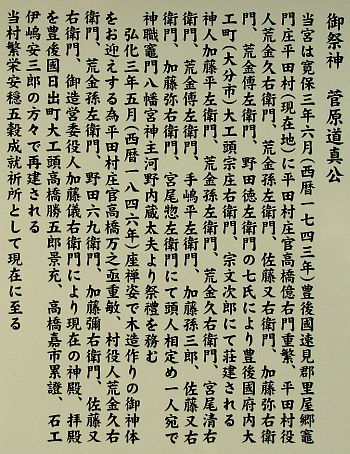 御祭神　菅原道真公
当宮は寛保三年六月(西暦一七四三年)豊後國速見郡里屋郷竈
門庄平田村(現在地)に平田村庄官高橋億右門重繁、平田村役
人荒金久右衛門、荒金孫左衛門、佐藤又右衛門、加藤弥右衛
門、荒金傳左衛門、野田徳左衛門の七氏により豊後國府内大
工町(大分市)大工頭宗庄右衛門、宗文次郎にて荘建される
神人加藤平左衛門、荒金孫左衛門、荒金久右衛門、宮尾清右
衛門、荒金傅左衛門、手嶋平左衛門、加藤孫三郎、佐藤又右
衛門、加藤弥右衛門、宮尾惣左衛門にて頭人相定め一人宛で
神職竈門八幡宮神主河野内蔵太夫より祭禮を務む
弘化三年五月(西暦一八四六年)座禅姿で木造作りの御神体
をお迎えする為平田村庄官高橋万之亟重敏、村役人荒金久右
衛門、荒金孫左衛門、野田六九衛門、加藤彌右衛門、佐藤又
右衛門、御造営委役人加藤儀右衛門により現在の神殿、拝殿
を豊後國日出町大工頭高橋勝五郎景充、高橋嘉市累證、石工
伊嶋安三郎の方々で再建される
当村繁栄安穏五穀成就祈所として現在に至る